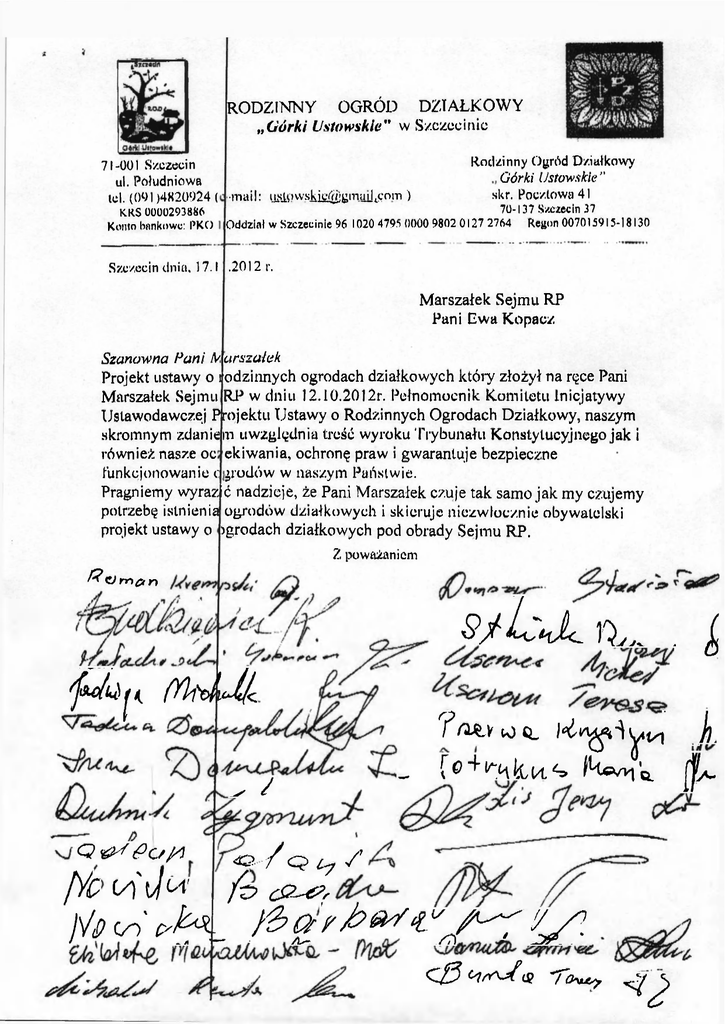 Szczecin
R.O.D.
Górki Ustowskie
P
Z
D
RODZINNY OGRÓD DZIAŁKOWY
„Górki Ustowskie" w Szczecinie
71-001 Szczecin
ul. Południowa
tel. (091)4820924 (e-mail: ustowskie@gmail.com )
KRS 0000293886
Rodzinny Ogród Działkowy
„Górki Ustowskie"
skr. Pocztowa 41
70-137 Szczecin 37
Konto bankowe: PKO I Oddział w Szczecinie 96 1020 4795 0000 9802 0127 2764 Regon 007015915-18130
Szczecin dnia, 17.1 .2012 r.
Marszałek Sejmu RP
Pani Ewa Kopacz
Szanowna Pani Marszałek
Projekt ustawy o rodzinnych ogrodach działkowych który złożył na ręce Pani
Marszałek Sejmu RP w dniu 12.10.2012r. Pełnomocnik Komitetu Inicjatywy
Ustawodawczej Projektu Ustawy o Rodzinnych Ogrodach Działkowy, naszym
skromnym zdaniem uwzględnia treść wyroku Trybunału Konstytucyjnego jak i
również nasze oczekiwania, ochronę praw i gwarantuje bezpieczne
funkcjonowanie ogrodów w naszym Państwie.
Pragniemy wyrazić nadzieje, że Pani Marszałek czuje tak samo jak my czujemy
potrzebę istnienia ogrodów działkowych i skieruje niezwłocznie obywatelski
projekt ustawy o ogrodach działkowych pod obrady Sejmu RP.
Z poważaniem
Roman Krempski
Jadwiga Michalak
Teresa
Przerwa Krystyna
Irena
Totrykus Maria
Zygmunt
Lis Jerzy
Nowicki
Nowicka Barbara
Elżbieta Małachowska - Mał
Danuta